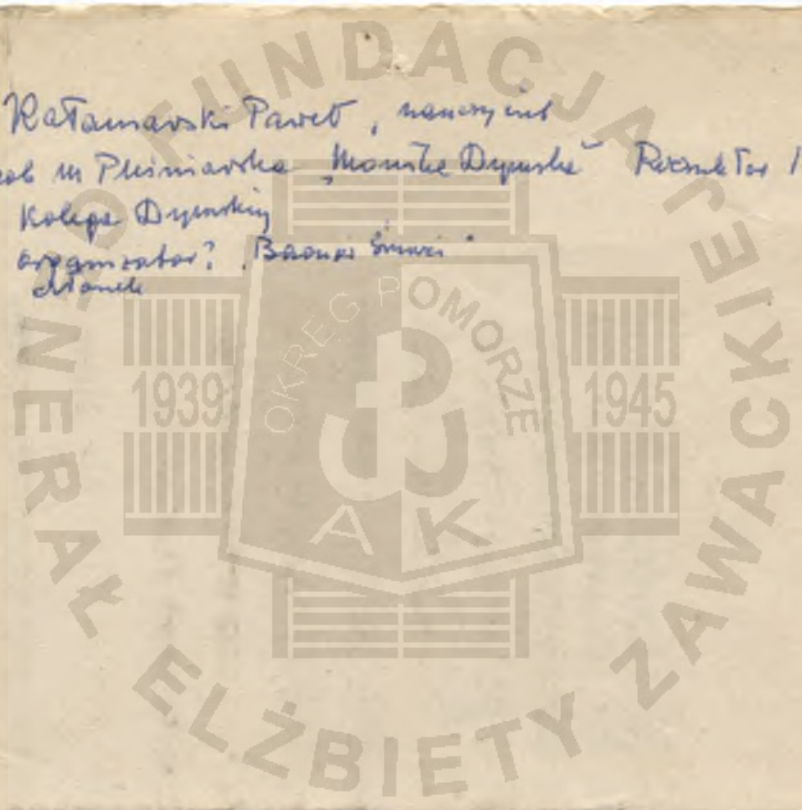 Kałamarski Paweł, nauczyciel
zob m Pleśniarska "Monika Dymska" Rozmółtów 1
Kolega Dymskiej
organizator? "Batalion Śmierci"
członek
FUNDACJA
GENERAŁ ELŻBIETY ZAWACKIEJ
OKRĘG POMORZE
1939 1945
AK